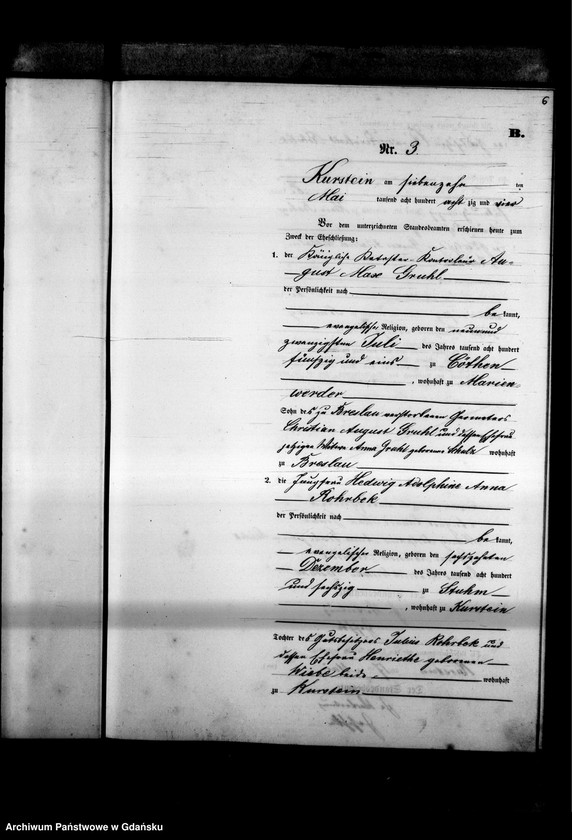 6
B.
Nr. 3
Kurstein am siebenzehn ten
Mai tausend acht hundert acht zig und vier
Vor dem unterzeichneten Standesbeamten erschienen heute zum
Zweck der Eheschließung:
1. der Königliche Kataster-Kontroleur Au-
gust Max Gruhl
der Persönlichkeit nach
be kannt,
evangelischer Religion, geboren den neunund
zwanzigsten Juli des Jahres tausend acht hundert
fünfzig und eins zu Cöthen
, wohnhaft zu Marien
werder
Sohn des zu Breslau verstorbenen Geometers
Christian August Gruhl und dessen Ehefrau
jetzigen Witwe Anna Gruhl geborenen Schulz wohnhaft
zu Breslau
2. die Jungfrau Hedwig Adolphine Anna
Rohrbek
der Persönlichkeit nach
be kannt,
evangelischer Religion, geboren den sechszehnten
Dezember des Jahres tausend acht hundert
und sechszig zu Stuhm
, wohnhaft zu Kurstein
Tochter des Gutsbesitzers Julius Rohrbek und
dessen Ehefrau Henriette geborenen
Wiebe beide wohnhaft
zu Kurstein
Archiwum Państwowe w Gdańsku